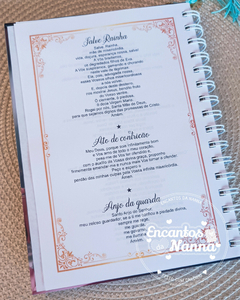 Salve Rainha
Salve, Rainha
mãe de misericórdia,
vida, doçura, esperança nossa, salve!
A Vós bradamos,
os degredados filhos de Eva.
A Vós suspiramos, gemendo e chorando
neste vale de lágrimas.
Eia, pois, advogada nossa,
esses Vossos olhos misericordiosos
a nós volvei.
E, depois deste desterro,
nos mostrai Jesus, bendito fruto
do Vosso ventre.
Ó clemente, ó piedosa,
ó doce Virgem Maria.
Rogai por nós, Santa Mãe de Deus,
para que sejamos dignos das promessas de Cristo.
Amém.
Ato de contrição
Meu Deus, porque sois infinitamente bom
e Vos amo de todo o meu coração,
pesa-me de Vos ter ofendido e,
com o auxílio da Vossa divina graça, proponho
firmemente emendar-me e nunca mais Vos tornar a ofender.
Peço e espero o
perdão das minhas culpas pela Vossa infinita misericórdia.
Amém.
Anjo da guarda
Santo Anjo do Senhor,
meu zeloso guardador, se a ti me confiou a piedade divina,
sempre me rege,
me guarde,
Amém.
Encantos
da
Nanna